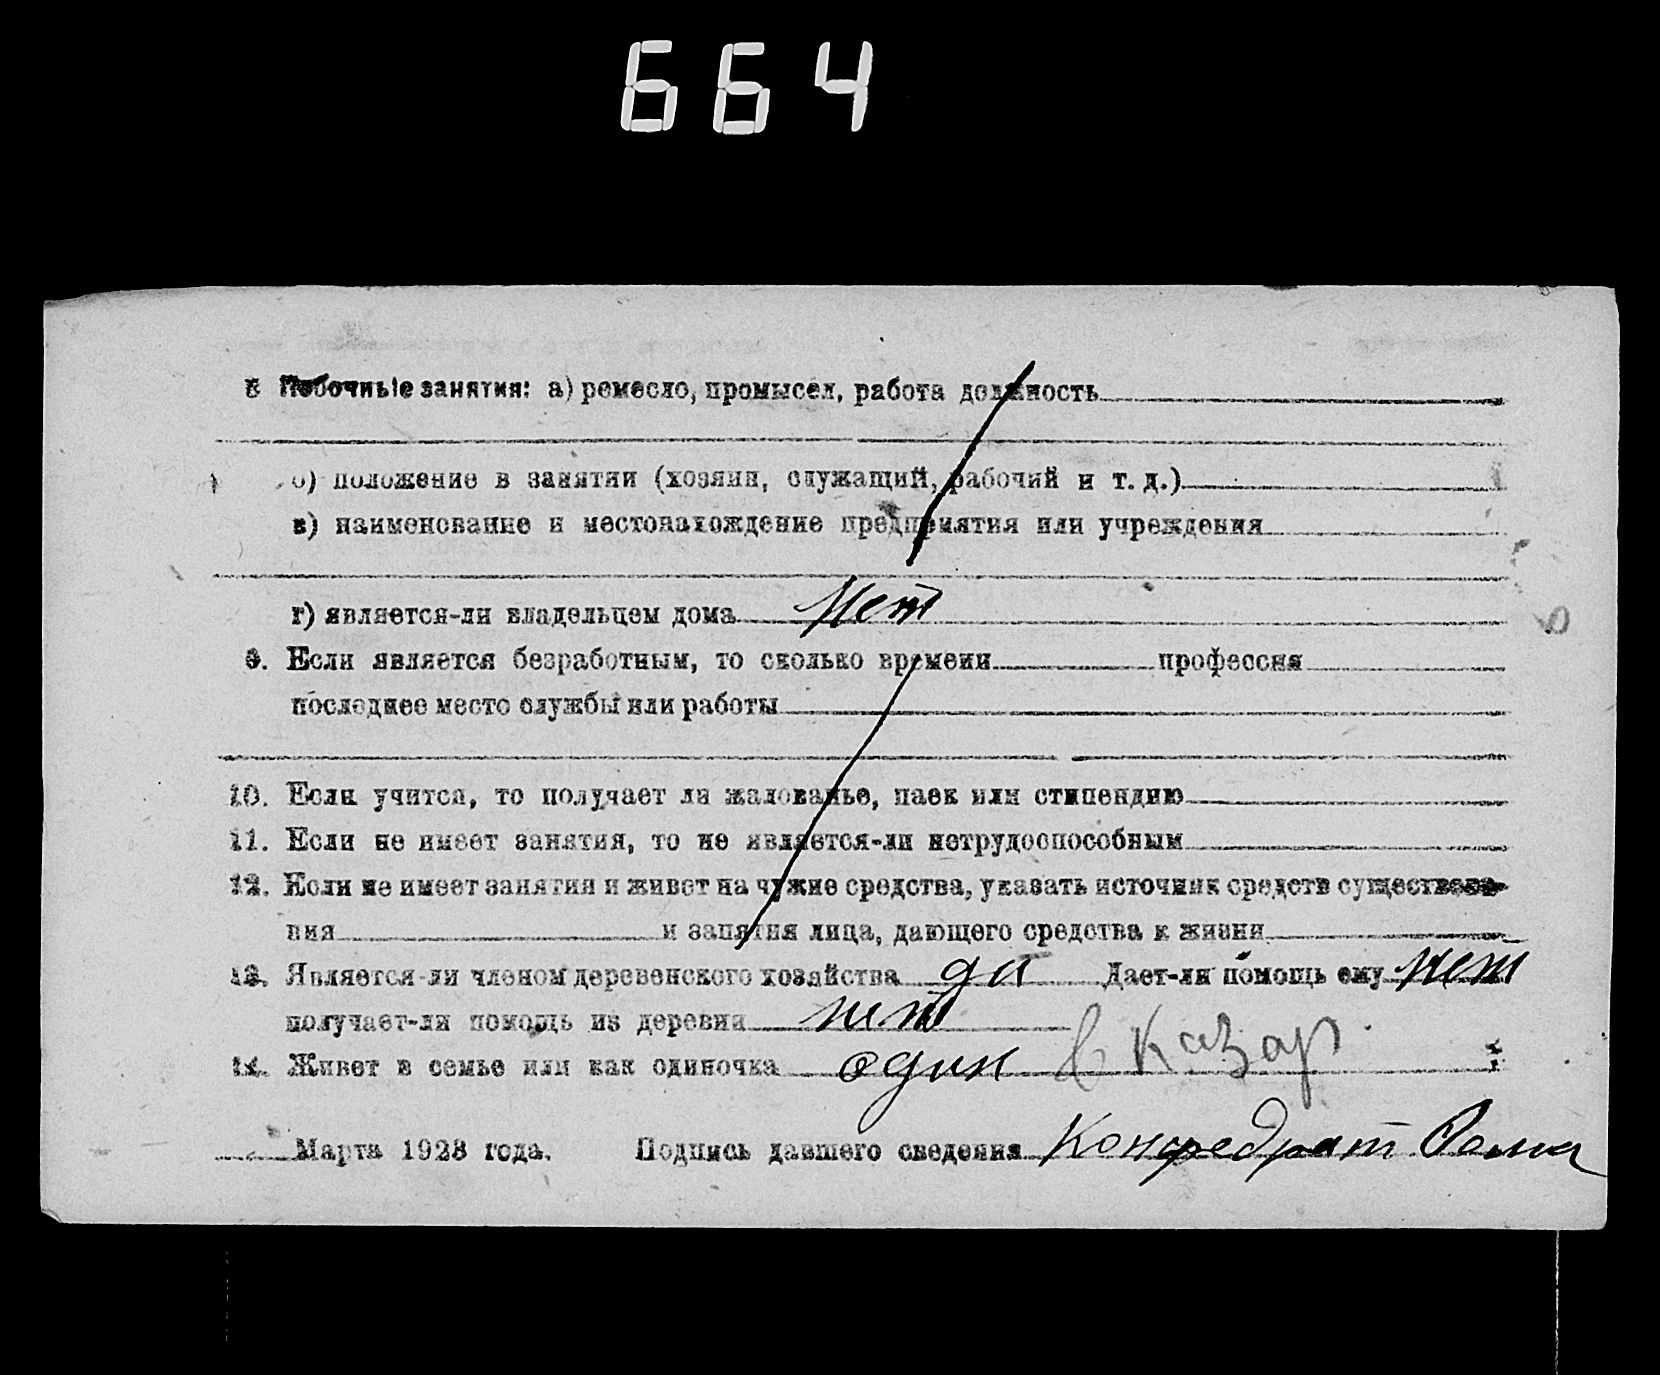 664
8 Побочные занятия: а) ремесло, промысел, работа должность
б) положение в занятии (хозяин, служащий, рабочий и т. д.)
в) наименование и местонахождение предприятия или учреждения
г) является-ли владельцем дома Нет
9. Если является безработным, то сколько времени профессия
последнее место службы или работы
10. Если учится, то получает ли жалованье, паек или стипендию
11. Если не имеет занятия, то не является-ли нетрудоспособным
12. Если не имеет занятия и живет на чужие средства, указать источник средств существова-
ния и занятия лица, дающего средства к жизни
13. Является-ли членом деревенского хозяйства да Дает-ли помощь ему нет
получает-ли помощь из деревни нет
14. Живет в семье или как одиночка один в казар.
Марта 1923 года. Подпись давшего сведения Конфедрат